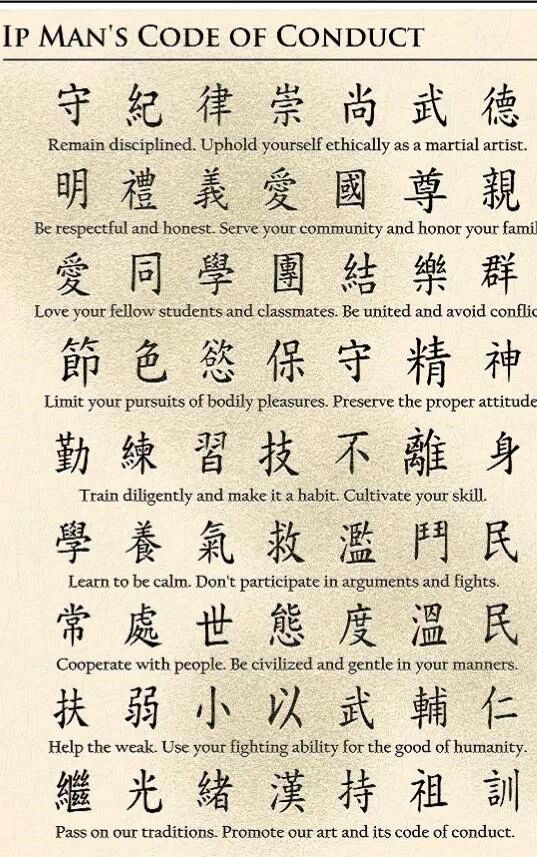 IP MAN'S CODE OF CONDUCT
守紀律崇尚武德
Remain disciplined. Uphold yourself ethically as a martial artist.
明禮義愛國尊親
Be respectful and honest. Serve your community and honor your famil
愛同學團結樂群
Love your fellow students and classmates. Be united and avoid conflic
節色慾保守精神
Limit your pursuits of bodily pleasures. Preserve the proper attitude
勤練習技不離身
Train diligently and make it a habit. Cultivate your skill.
學養氣救濫鬥民
Learn to be calm. Don't participate in arguments and fights.
常處世態度溫民
Cooperate with people. Be civilized and gentle in your manners.
扶弱小以武輔仁
Help the weak. Use your fighting ability for the good of humanity.
繼光緒漢持祖訓
Pass on our traditions. Promote our art and its code of conduct.